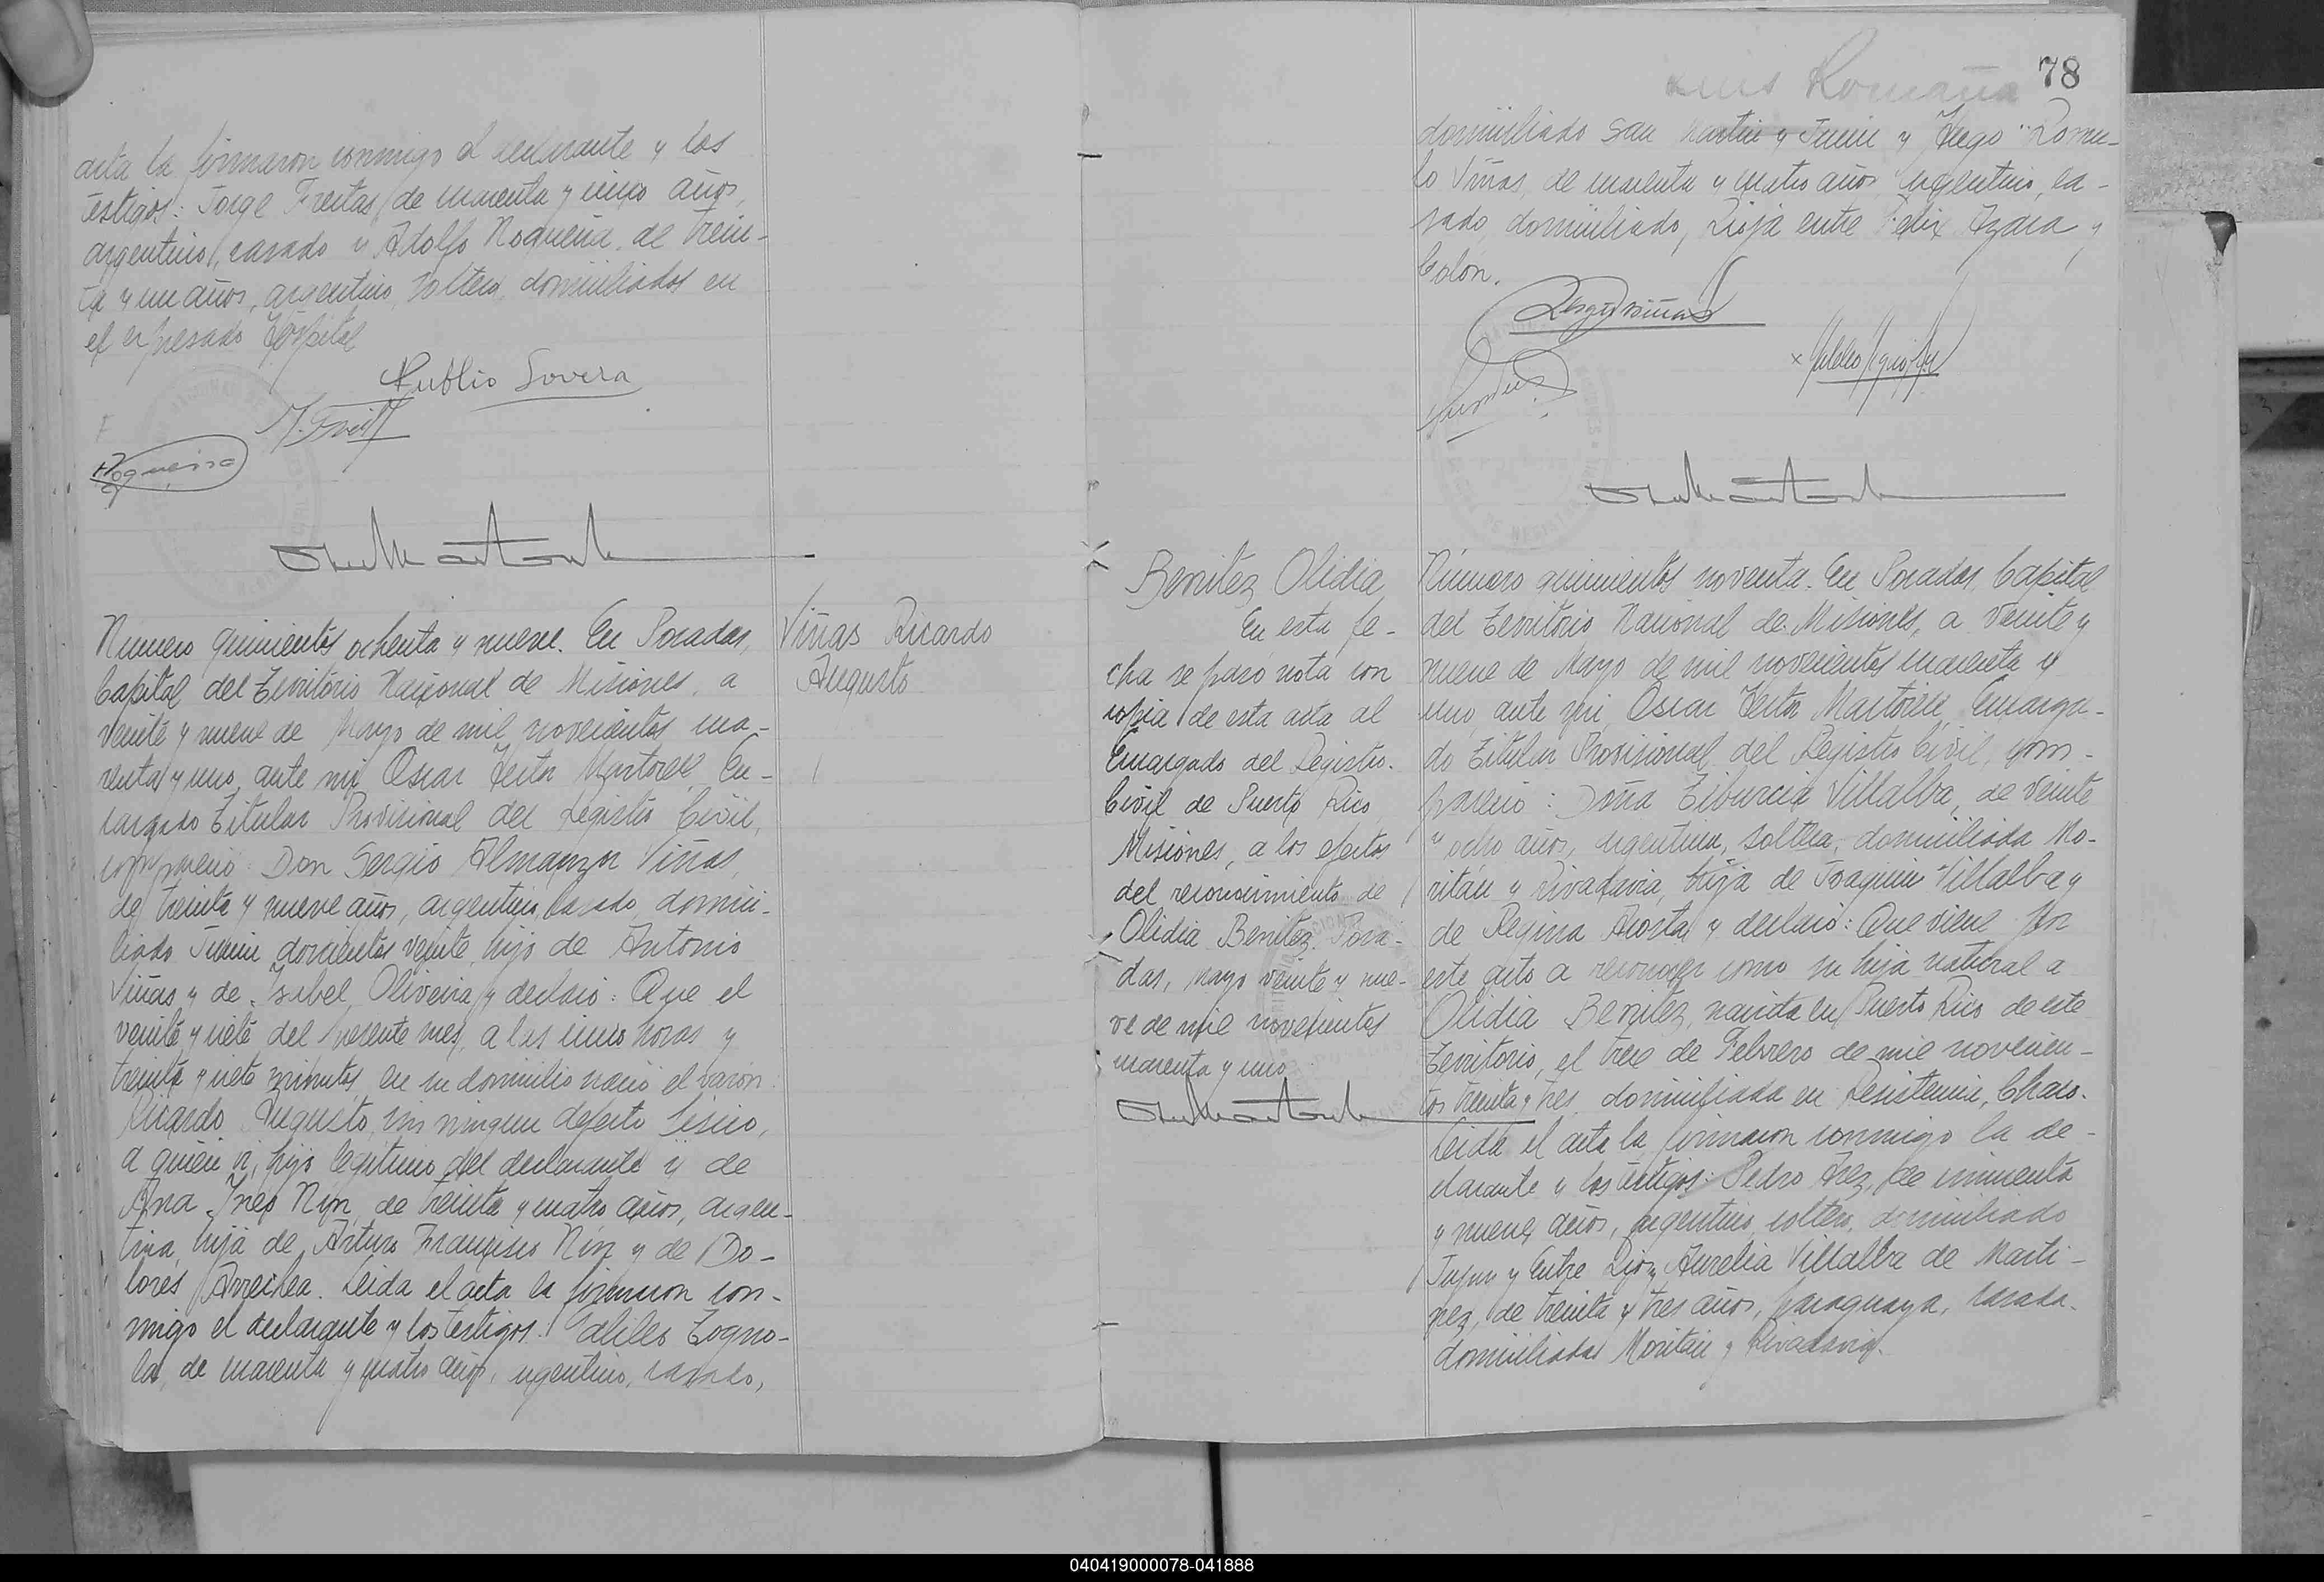 acta la firmaron conmigo el declarante y los
testigos: Jorge Freitas, de cuarenta y cinco años,
argentino, casado y Adolfo Nogueira, de trein-
ta y un años, argentino, soltero, domiciliados en
el expresado Hospital
Publio Lovera
J. Freit
Nogueira
Número quinientos ochenta y nueve. En Posadas,
Capital del Territorio Nacional de Misiones, a
veinte y nueve de Mayo de mil novecientos cua-
renta y uno, ante mi Oscar Hector Martorell, En-
cargado Titular Provisional del Registro Civil,
compareció: Don Sergio Almanzor Viñas,
de treinta y nueve años, argentino, casado, domici-
liado Junin doscientos veinte, hijo de Antonio
Viñas y de Isabel Oliveira y declaró: Que el
veinte y siete del presente mes, a las cinco horas y
treinta y siete minutos, en su domicilio nació el varón
Ricardo Augusto, sin ningun defecto físico,
a quien vi, hijo legitimo del declarante y de
Ana Ines Nin, de treinta y cuatro años, argen-
tina, hija de Arturo Francisco Nin y de Do-
lores Arrechea. Leida el acta la firmaron con-
migo el declarante y los testigos: Galileo Togno-
la, de cuarenta y cuatro años, argentino, casado,
Viñas Ricardo
Augusto
78
Luis Romaña
domiciliado San Martin y Junin y Hugo Romu-
lo Viñas, de cuarenta y cuatro años, argentino, ca-
sado, domiciliado, Rioja entre Felix Azara y
Colón.
Benitez Olidia
En esta fe-
cha se pasó nota con
copia de esta acta al
Encargado del Registro
Civil de Puerto Rico,
Misiones, a los efectos
del reconocimiento de
Olidia Benitez. Posa-
das, Mayo veinte y nue-
ve de mil novecientos
cuarenta y uno
Número quinientos noventa. En Posadas, Capital
del Territorio Nacional de Misiones, a veinte y
nueve de Mayo de mil novecientos cuarenta y
uno, ante mi Oscar Hector Martorell, Encarga-
do Titular Provisional del Registro Civil, com-
pareció: Doña Tiburcia Villalba, de veinte
y ocho años, argentina, soltera, domiciliada Mo-
ritán y Rivadavia, hija de Joaquin Villalba y
de Regina Acosta y declaró: Que viene por
este acto a reconocer como su hija natural a
Olidia Benitez, nacida en Puerto Rico de este
Territorio, el trece de Febrero de mil novecien-
tos treinta y tres, domiciliada en Resistencia, Chaco.
Leida el acta la firmaron conmigo la de-
clarante y los testigos: Pedro Arez, de cincuenta
y nueve años, argentino, soltero, domiciliado
Jujuy y Entre Rios y Aurelia Villalba de Marti-
nez, de treinta y tres años, paraguaya, casada,
domiciliada Moritán y Rivadavia.
040419000078-041888